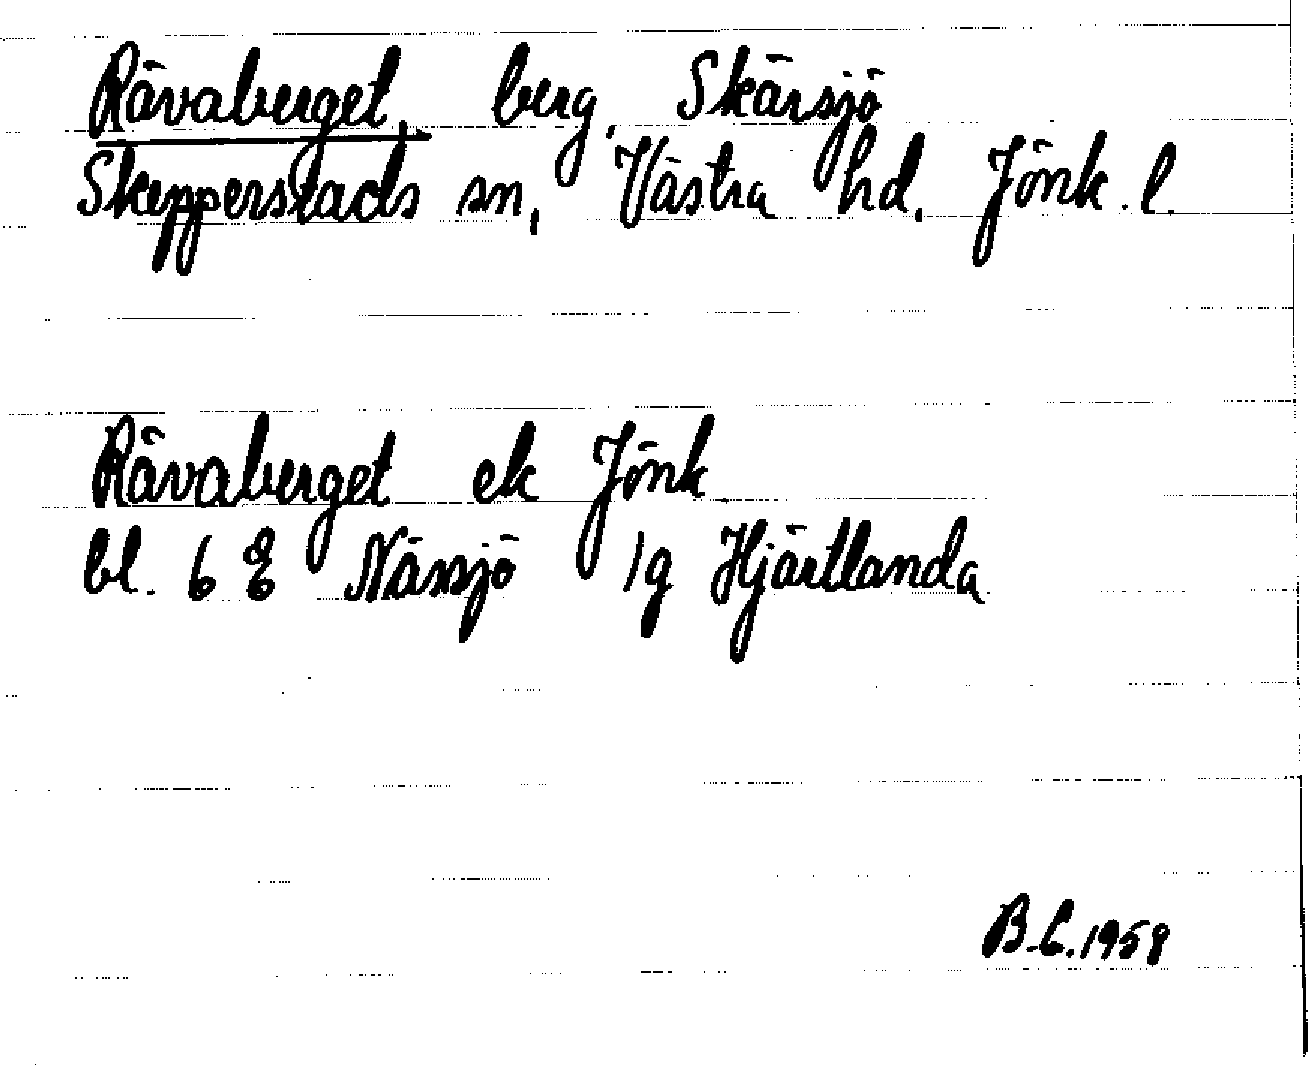 Rävaberget, berg, Skärsjö
Skepperstads sn, Västra hd. Jönk. l.
Rävaberget ek Jönk.
bl. 6 E Nässjö 1g Hjärtlanda
B.C. 1958